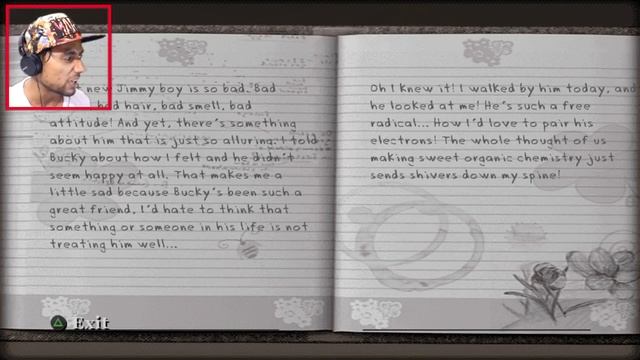 new Jimmy boy is so bad. Bad
bad hair, bad smell, bad
attitude! And yet, there's something
about him that is just so alluring. I told
Bucky about how I felt and he didn't
seem happy at all. That makes me a
little sad because Bucky's been such a
great friend. I'd hate to think that
something or someone in his life is not
treating him well...
Oh I knew it! I walked by him today, and
he looked at me! He's such a free
radical... How I'd love to pair his
electrons! The whole thought of us
making sweet organic chemistry just
sends shivers down my spine!
Exit